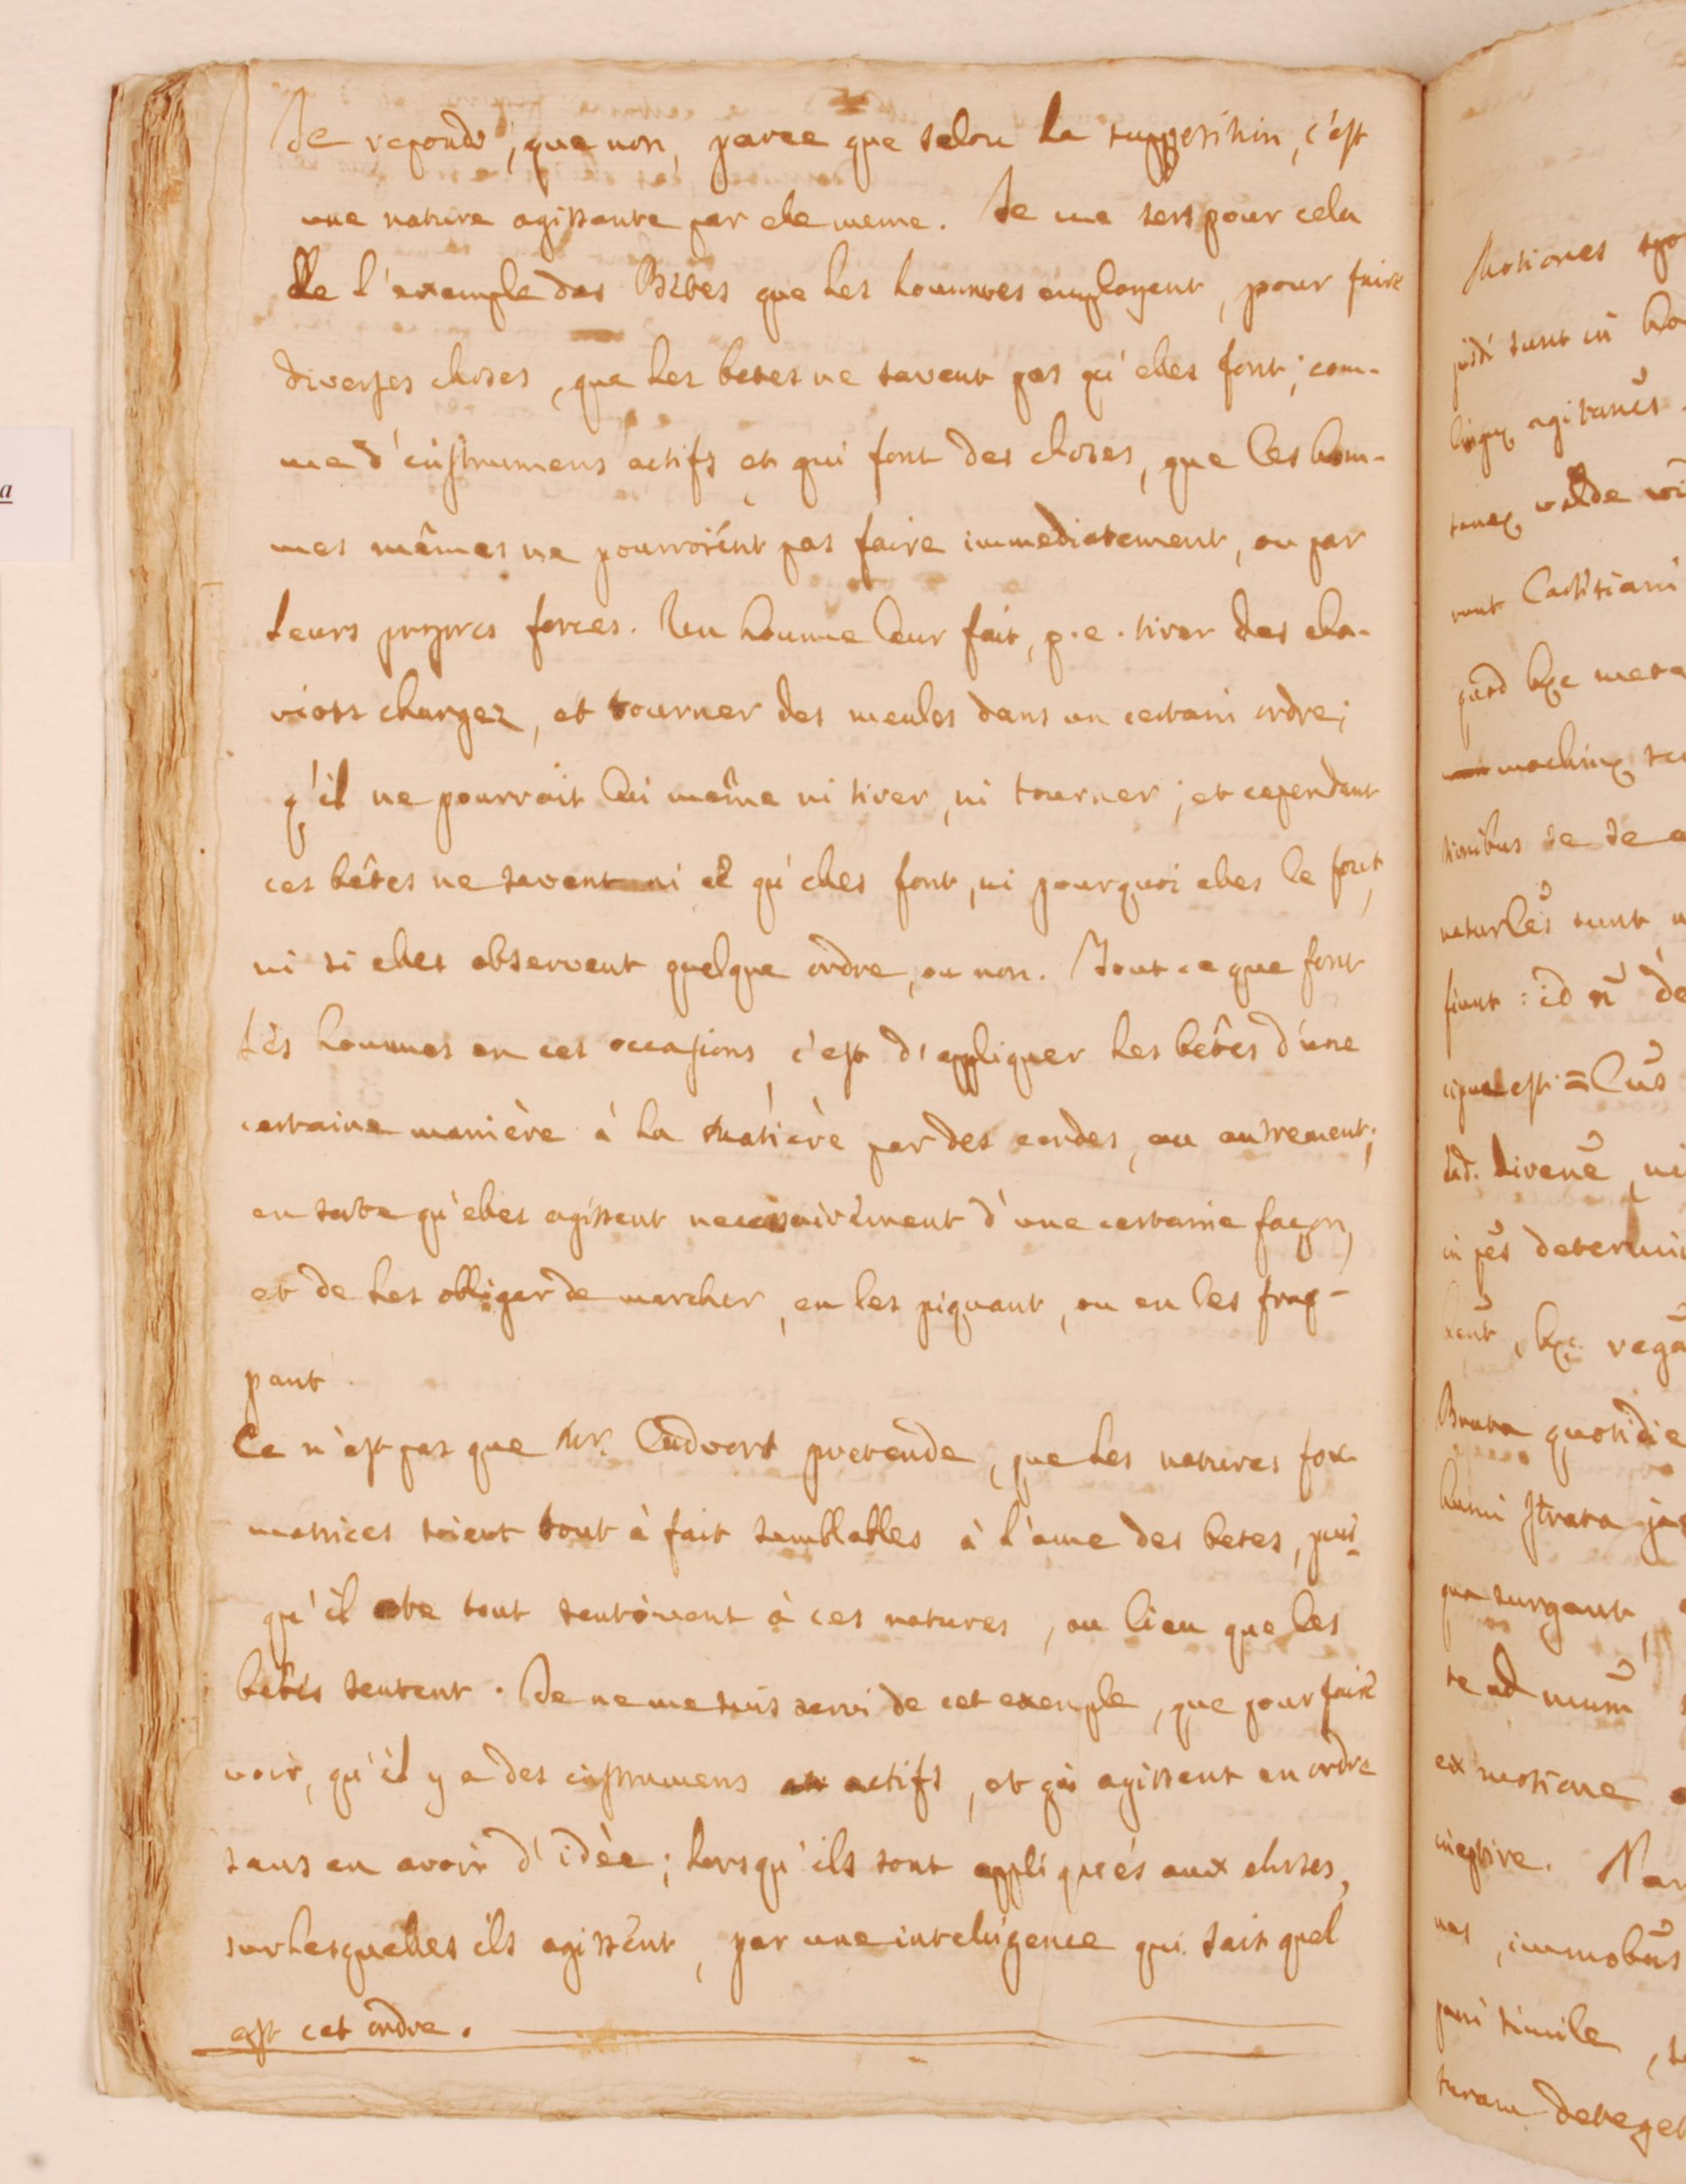 Je repons, que non, parce que selon la supposition, c'est
une nature agissante par elle meme. Je me sers pour cela
de l'exemple des Bêtes que les hommes employent, pour faire
diverses choses, que les betes ne savent pas qu'elles font; com-
me d'instrumens actifs et qui font des choses, que les hom-
mes mêmes ne pourroient pas faire immediatement, ou par
leurs propres forces. Un homme leur fait, p. e. tirer des cha-
riots chargez, et tourner des meules dans un certain ordre;
q'il ne pourroit lui même ni tirer, ni tourner; et cependant
ces bêtes ne savent ni ce qu'elles font, ni pourquoi elles le font,
ni si elles observent quelque ordre, ou non. Tout ce que font
les hommes en ces occasions, c'est d'appliquer les bêtes d'une
certaine manière à la matière par des cordes, ou autrement;
en sorte qu'elles agissent necessairement d'une certaine façon,
et de les obliger de marcher, en les piquant, ou en les frap-
pant.
Ce n'est pas que Mr. Cudvort pretende, que les natures for-
matrices soient tout à fait semblables à l'ame des betes, puis
qu'il ote tout sentiment à ces natures, au lieu que les
bêtes sentent. Je ne me suis servi de cet exemple, que pour faire
voir, qu'il y a des instrumens actifs, et qui agissent en ordre
sans en avoir d'idèe; lorsqu'ils sont appliqués aux choses,
sur lesquelles ils agissent, par une intelligence qui sait quel
est cet ordre.
Motiones
sunt in
agitanes
valde
Cartesiani
machinæ
tionibus se
sunt
fiunt : id
est =
in determi
Bruta quotidie
humi strata
surgant,
te ad
ex motione
inepire. Nam
simile,